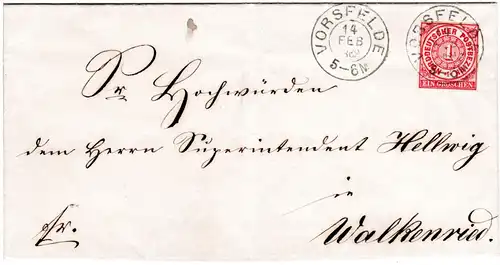 VORSFELDE
14
FEB
5–6N
VORSFEL
NORDDEUTSCHER POSTBEZIRK
1
EIN GROSCHEN
Sr Hochwürden
dem Herrn Superintendent Hellwig
in
fr. Walkenried.